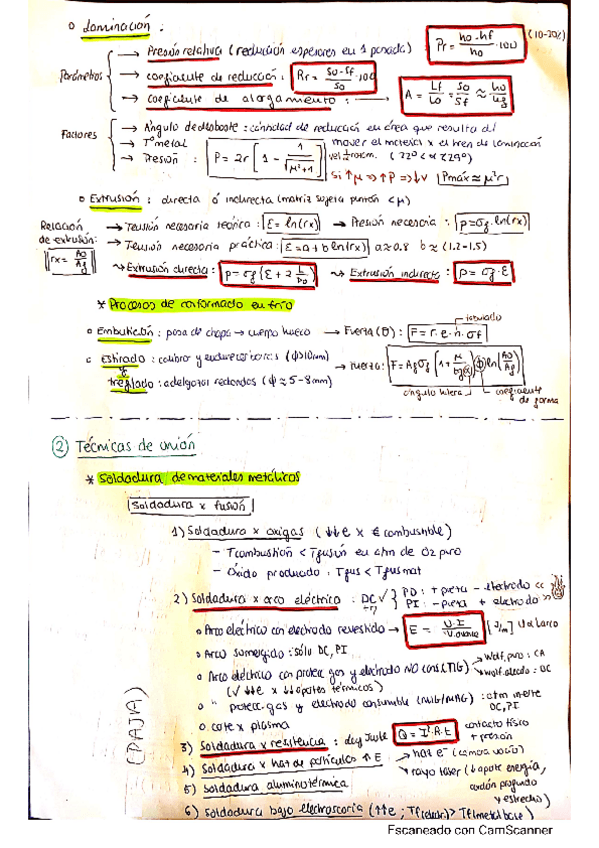 o Laminación :
Parámetros → Presión relativa (reducción espesores en 1 pasada) Pr = ho-hf / ho · 100 (10-20%)
→ coeficiente de reducción : Rr = So-Sf / So · 100
→ coeficiente de alargamiento : → A = Lf/Lo = So/Sf ≈ ho/hf
Factores → Ángulo de desbaste : cantidad de reducción en área que resulta del
→ Tª metal mover el material x el tren de laminación
→ Presión : P = 2r [1 - 1/√(μ²+1)] (22° < α < 29°)
Si ↑μ ⇒ ↑P ⇒ ↓v Pmáx ≈ μ²r
o Extrusión : directa ó indirecta (matriz sujeta punzón < μ)
Relación de extrusión: rx = Ao/Af
→ Tensión necesaria teórica : ε = ln(rx) → Presión necesaria : p = σf · ln(rx)
→ Tensión necesaria práctica : ε = a + b ln(rx) a ≈ 0.8 b ≈ (1.2-1.5)
→ Extrusión directa : p = σf (ε + 2 L/Do) → Extrusión indirecta : p = σf · ε
* Procesos de conformado en frío
o Embutición : pasa de chapa → cuerpo hueco → Fuerza (θ) : F = r · e · n · σf
o Estirado : calibrar y endurecer barras (ϕ>10mm)
y
trefilado : adelgazar redondos (ϕ ≈ 5-8mm)
→ fuerza : F = Af σf (1 + μ/tg(α)) ϕ ln(Ao/Af)
ángulo hilera coeficiente de forma
② Técnicas de unión
* Soldadura de materiales metálicos
Soldadura x fusión
1) Soldadura x oxigas (↓↓e x € combustible)
- Tcombustión < Tfusión en atm de O2 puro
- Óxido producido : Tfus < Tfus mat
2) Soldadura x arco eléctrico : DC ✓ PD : + pieza - electrodo <<
PI : - pieza + electrodo >>
o Arco eléctrico con electrodo revestido → E = U·I / V.avance [J/m] U α Larco
o Arco sumergido : sólo DC, PI
o Arco eléctrico con protec gas y electrodo NO cons.(TIG) → Wolf. puro : CA
→ Wolf. aleado : DC
(✓ ↓↓e x ↓↓ aportes térmicos)
o " protecc. gas y electrodo consumible (MIG/MAG) : atm inerte
DC, PI
o corte x plasma
(PAJA)
3) Soldadura x resistencia : ley Joule Q = I²·R·t contacto físico
+ presión
4) Soldadura x haz de partículas ↑ E → haz e- (cámara vacío)
→ rayo láser (↓ aporte energía,
cordón profundo
y estrecho)
5) Soldadura aluminotérmica
6) Soldadura bajo electroescoria (↑↑e ; > Tf(metal base)
Escaneado con CamScanner